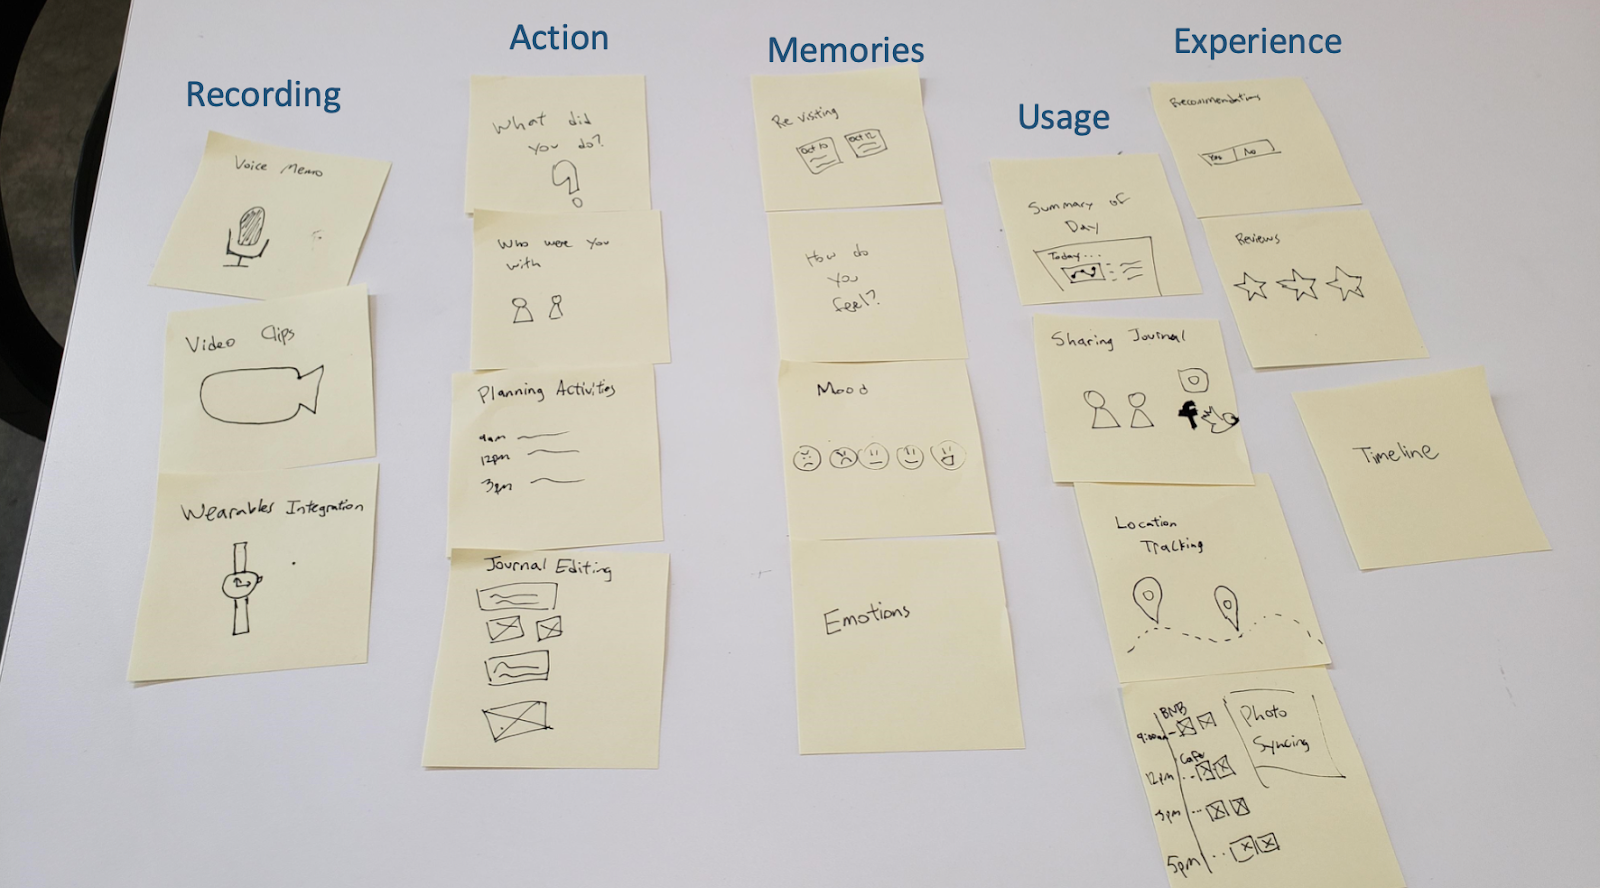 Recording
Voice Memo
Video Clips
Wearables Integration
Action
What did
you do?
?
Who were you
with
Planning Activities
9am
12pm
3pm
Journal Editing
Memories
Revisiting
Oct 10
Oct 12
How do
you
feel?
Mood
Emotions
Usage
Summary of
Day
Today...
Sharing Journal
f
Location
Tracking
BNB
9:00am
Cafe
12pm
3pm
5pm
Photo
Syncing
Experience
Recommendations
Yes No
Reviews
Timeline